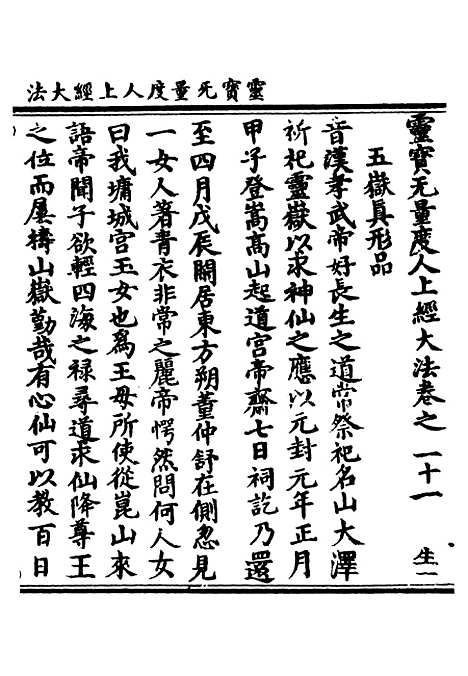 靈寶无量度人上經大法
靈寶无量度人上經大法卷之二十一 生一
五嶽真形品
昔漢孝武帝好長生之道常祭祀名山大澤
祈祀靈嶽以求神仙之應以元封元年正月
甲子登嵩高山起道宫帝齋七日祠訖乃還
至四月戊辰閑居東方朔董仲舒在側忽見
一女人著青衣非常之麗帝愕然問何人女
曰我墉城宫王女也為王母所使從崑山來
語帝聞子欲輕四海之禄尋道求仙降尊王
之位而屢禱山嶽勤哉有心仙可以教百日